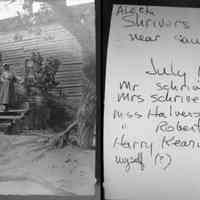 Shrivers
near
July
Mr Schri
Mrs Schrive
Miss Halvers
" Robert
Harry Kear
myself (?)